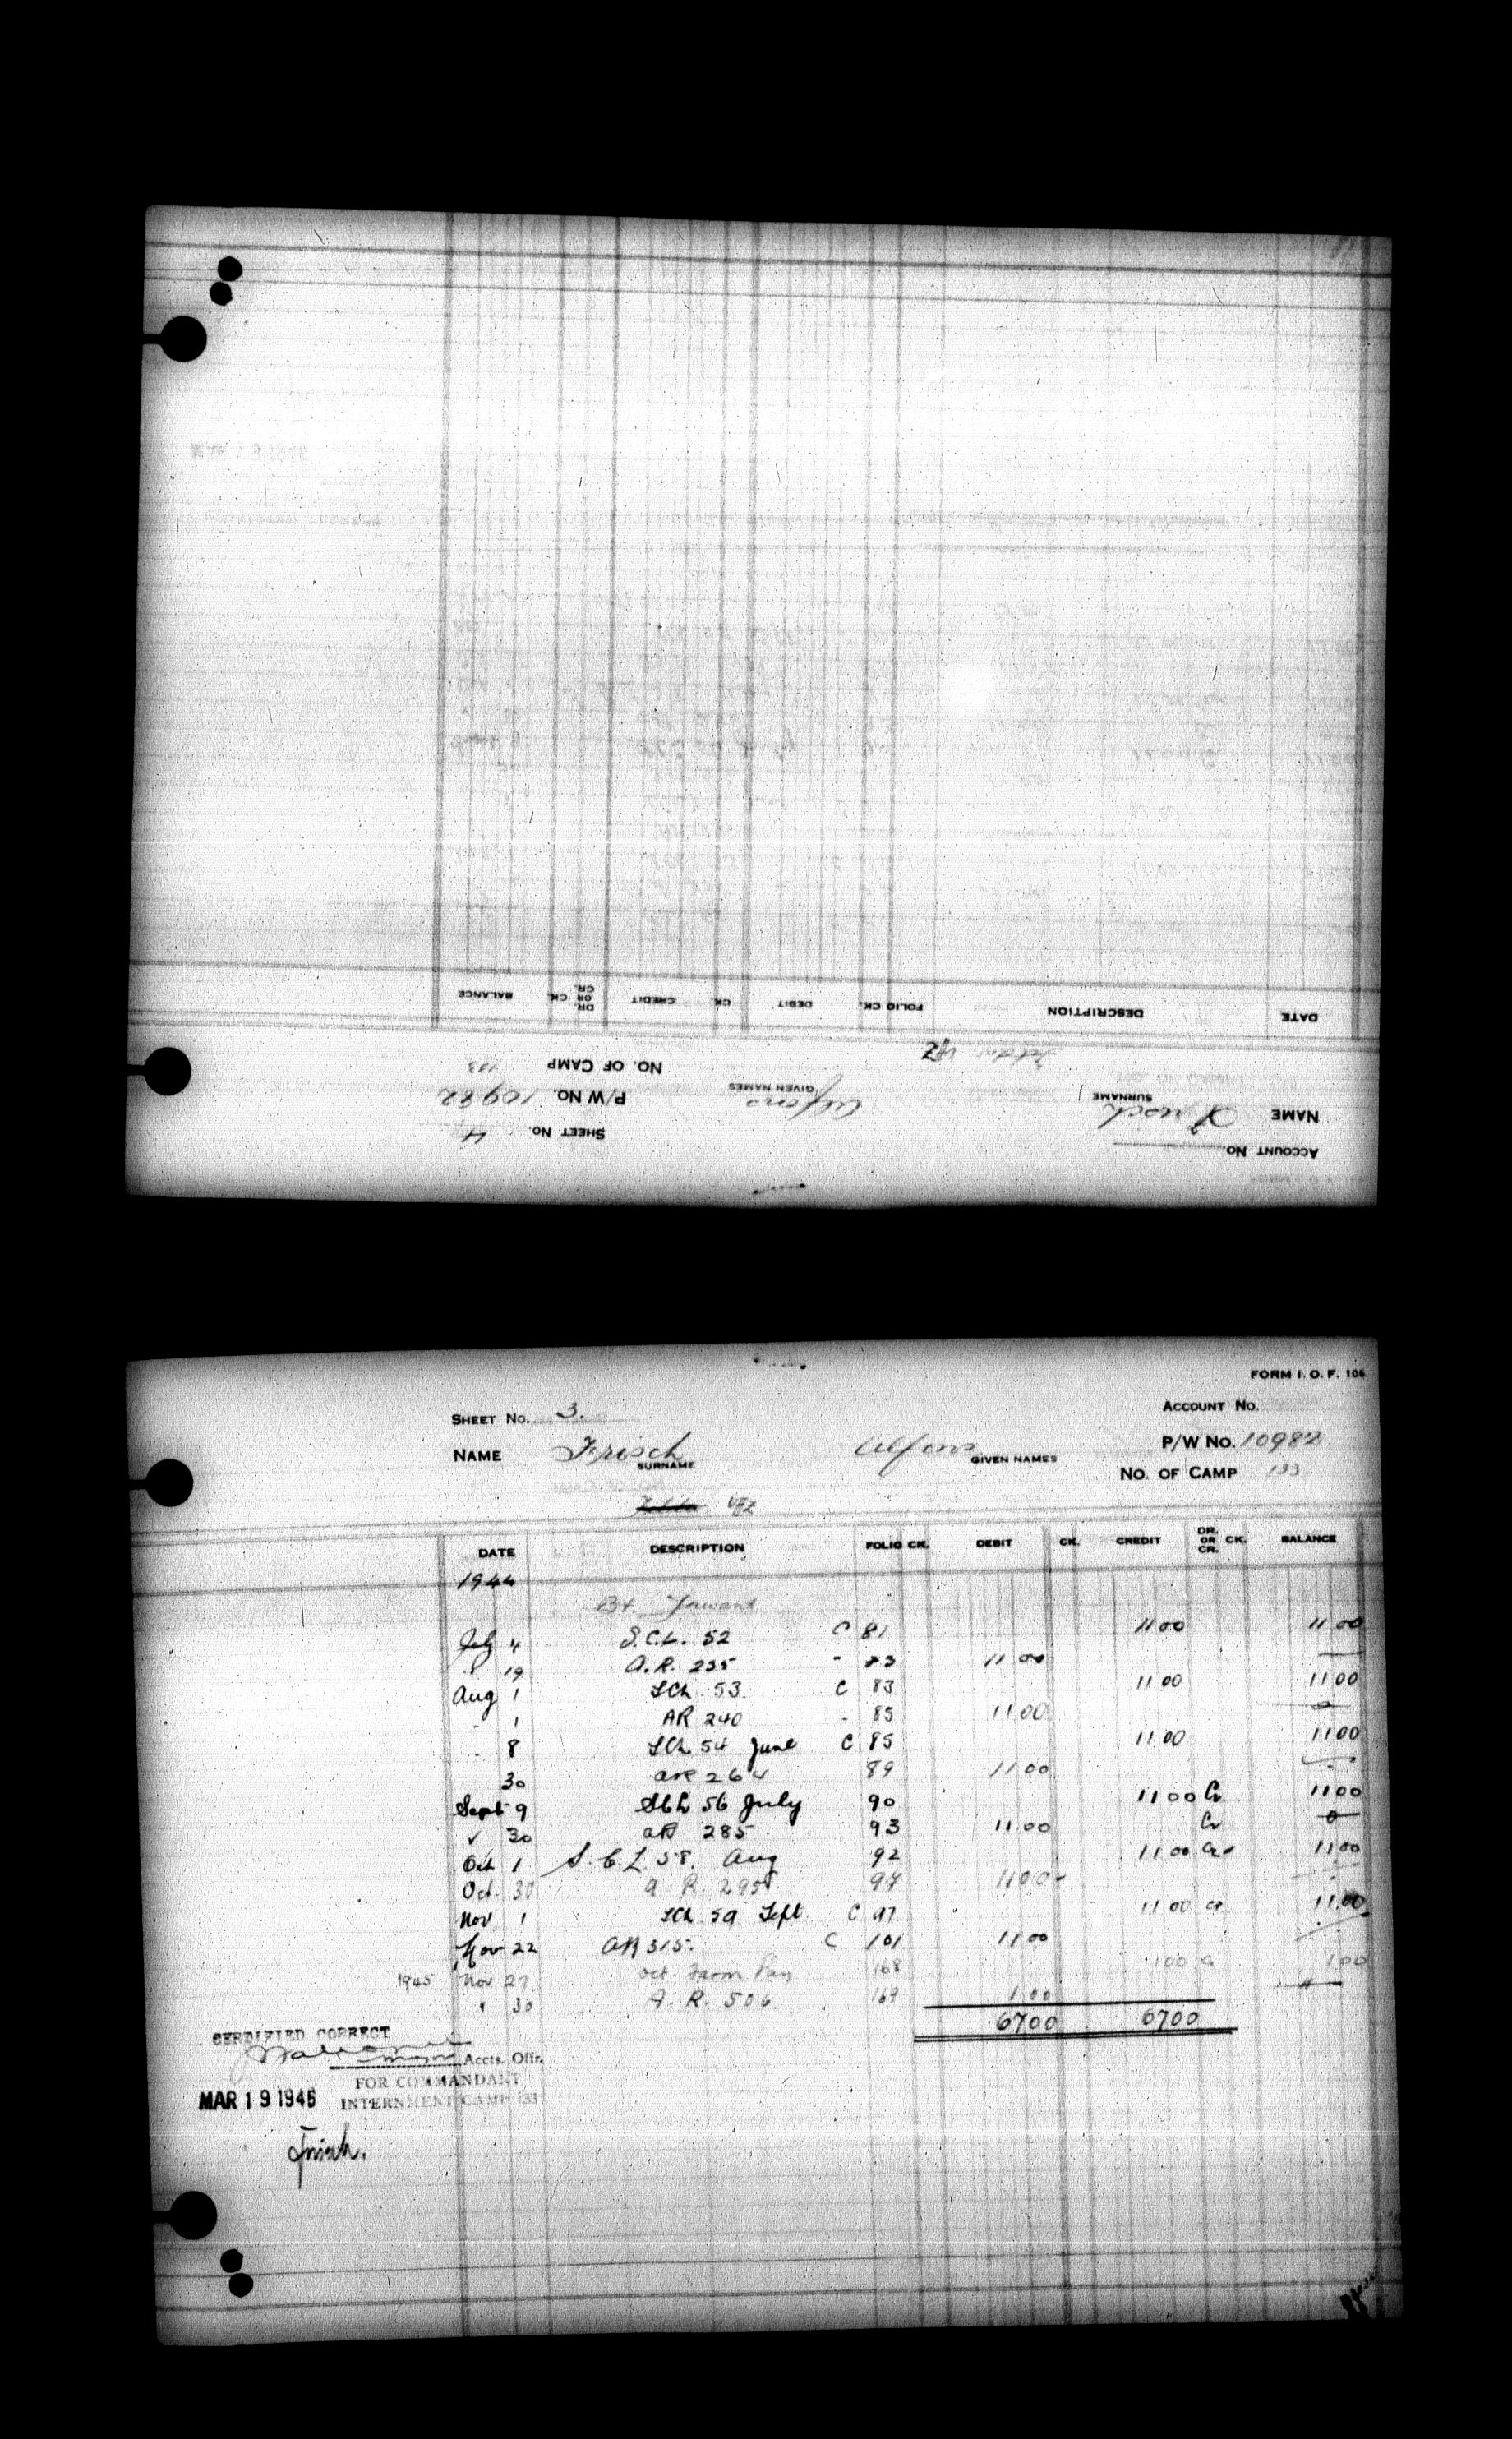 ACCOUNT No.
SHEET No. 4
NAME Frisch SURNAME Alfons GIVEN NAMES P/W No. 10982
Uffz NO. OF CAMP 133
DATE DESCRIPTION FOLIO CK. DEBIT CK. CREDIT DR. OR CR. CK. BALANCE
FORM I. O. F. 106
SHEET No. 3. ACCOUNT No.
NAME Frisch SURNAME Alfons GIVEN NAMES P/W No. 10982
NO. OF CAMP 133
Uffz
DATE DESCRIPTION FOLIO CK. DEBIT CK. CREDIT DR. OR CR. CK. BALANCE
1944
Bt. Forward
July 4 S.C.L. 52 C 81 11 00 11 00
" 19 A.R. 235 - 83 11 00 —
Aug 1 SCL 53 C 83 11 00 11 00
- 1 AR 240 - 85 11 00 0
- 8 SCL 54 June C 85 11 00 11 00
30 AR 264 89 11 00
Sept 9 SCL 56 July 90 11 00 Cr 11 00
✓ 30 AR 285 93 11 00 Cr 0
Oct 1 S.C.L 58. Aug 92 11 00 Cr 11 00
Oct. 30 A R. 295 97 11 00
Nov 1 SCL 59 Sept. C 97 11 00 Cr 11.00
Nov 22 AR 315. C 101 11 00
1945 Nov 27 Oct. Farm Pay 168 1 00 Cr 1 00
" 30 A. R. 506 169 1 00
67 00 67 00
CERTIFIED CORRECT
Accts. Offr.
FOR COMMANDANT
MAR 19 1946 INTERNMENT CAMP 133
Frisch.